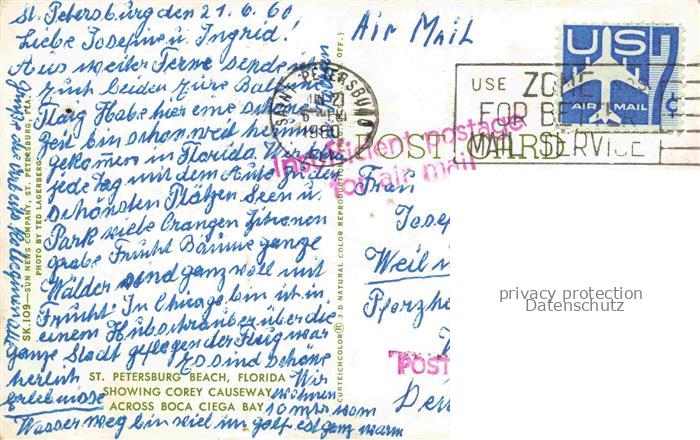 St. Petersburg den 21.6.60
Liebe Josefine u Ingrid!
Aus weiter Ferne sende ich
Euch beiden Eure
Habe hier eine schöne
Zeit bin schon weit
gekommen in Florida. Wir
jede Tag mit dem Auto zu den
schönsten Plätzen Seen u.
Park viele Orangen Zitronen
grabe Frücht Bäume ganze
Wälder sind ganz voll mit
Frücht. In Chicago bin ich in
einem Hubschrauber über die
ganze Stadt geflogen der Flug war
herlich Es sind schöne
Erlebnisse Wir wohnen
10 mtr vom
Wasser weg bin viel im golf ist ganz warm
Air Mail
US 7c
AIR MAIL
SAINT PETERSBURG
JUN 21
6 PM
1960
USE ZONE
FOR BETTER
MAIL SERVICE
Insufficient postage
for air mail
POST CARD
Frau
Josef
Weil
Pforzhe
POST
privacy protection
Datenschutz
SK.109—SUN NEWS COMPANY, ST. PETERSBURG, FLA.
PHOTO BY TED LAGERBERG
CURTEICHCOLOR® 3 D NATURAL COLOR REPRODUCTION
OFF.)
ST. PETERSBURG BEACH, FLORIDA
SHOWING COREY CAUSEWAY
ACROSS BOCA CIEGA BAY